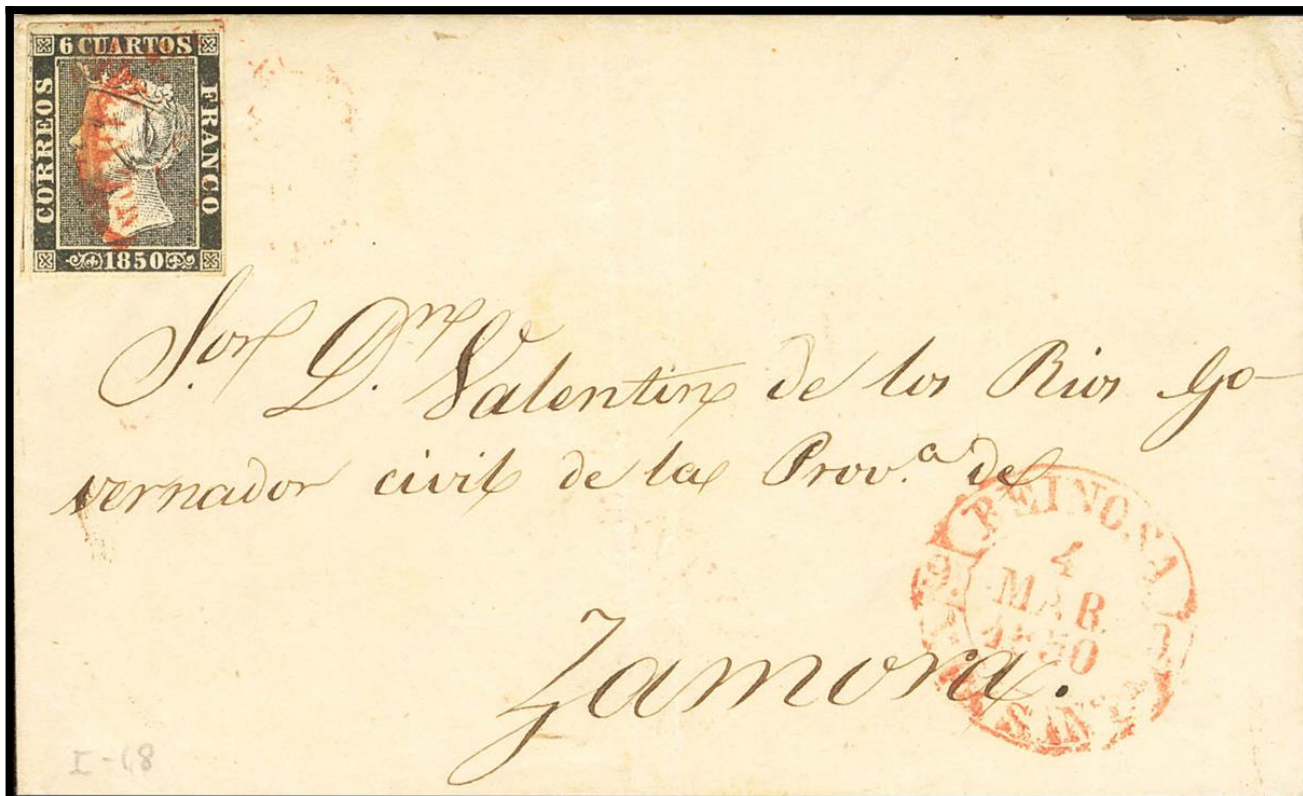 6 CUARTOS
CORREOS
FRANCO
1850
Sor Dn Valentin de los Rios Go-
vernador civil de la Prov.a de
Zamora.
REINOSA
4
MAR.
1850
I-18